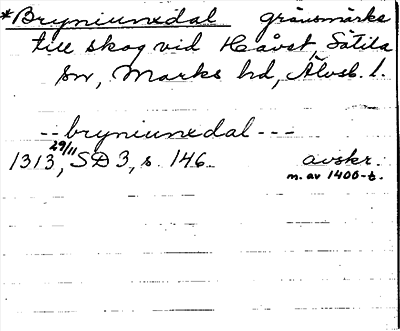 *Bryniunxdal gränsmärke
till skog vid Håvst, Sätila
sn, Marks hd, Älvsb. l.
-- bryniunxdal ---
1313 29/11, SD 3, s. 146 avskr.
m. av 1400-t.